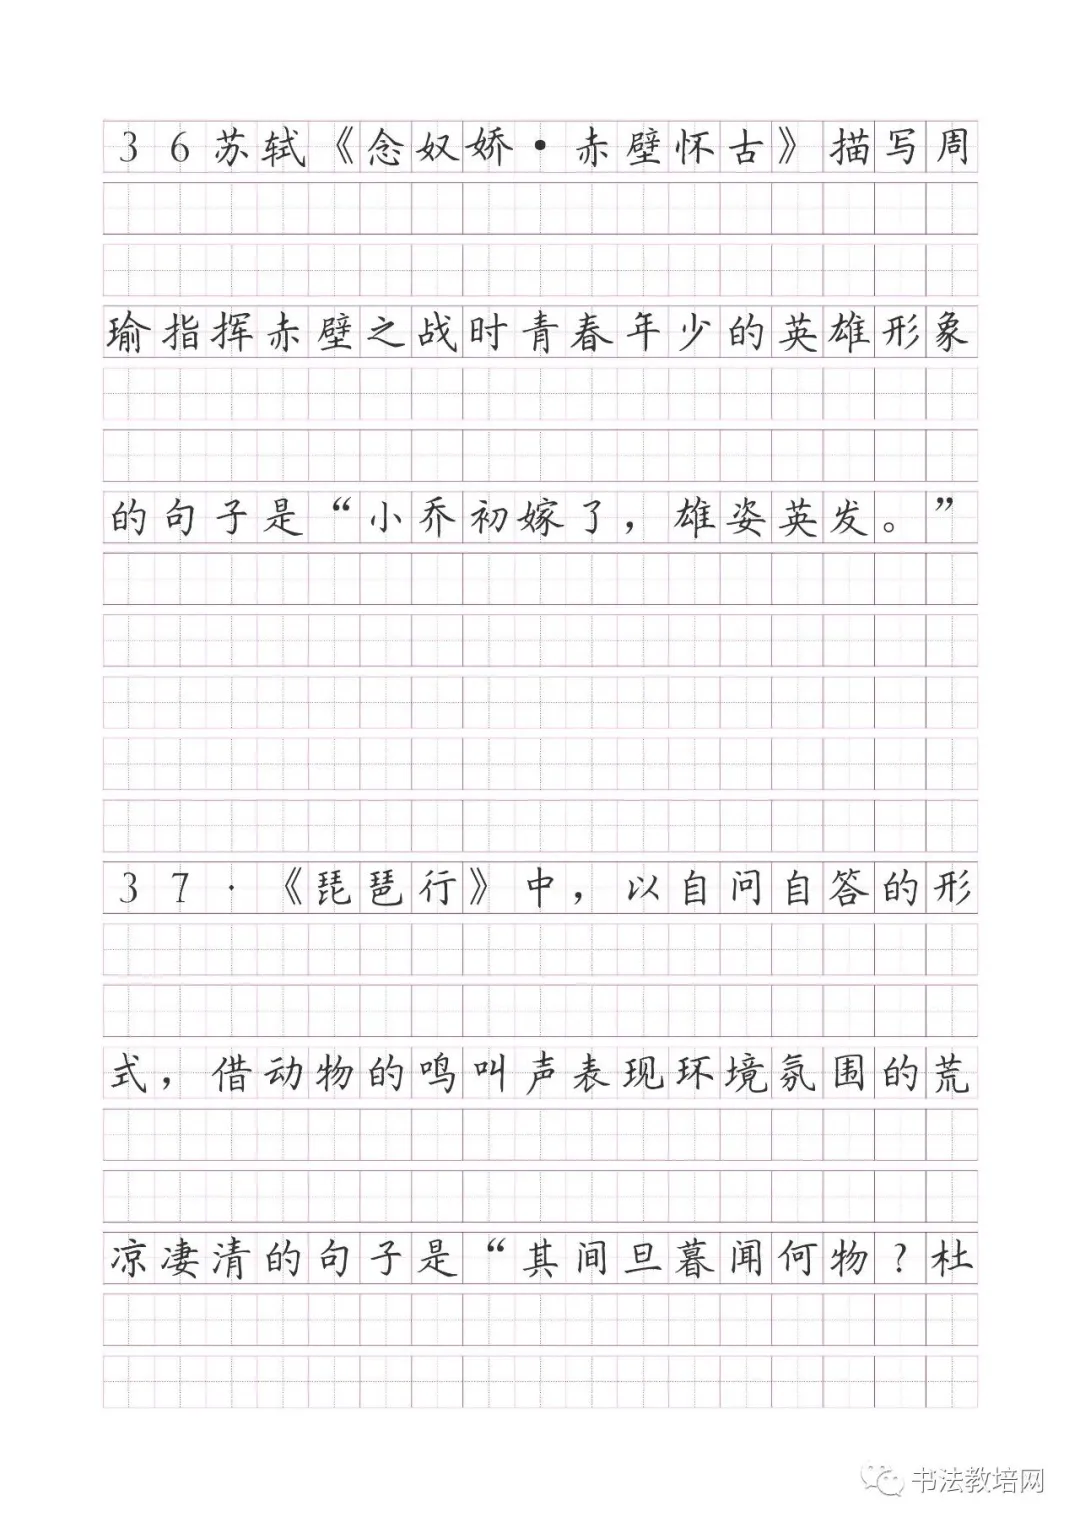 36苏轼《念奴娇·赤壁怀古》描写周
瑜指挥赤壁之战时青春年少的英雄形象
的句子是“小乔初嫁了，雄姿英发。”
37·《琵琶行》中，以自问自答的形
式，借动物的鸣叫声表现环境氛围的荒
凉凄清的句子是“其间旦暮闻何物?杜
书法教培网